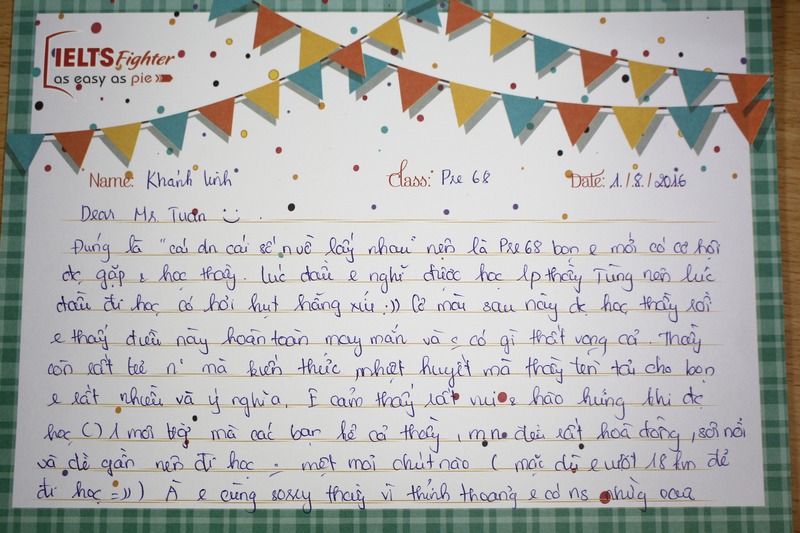 IELTS Fighter
as easy as pie
Name: Khánh Linh Class: Pre 68 Date: 1./8./2016
Dear Mr. Tuấn :) .
Đúng là "cái dn cái số nó vồ lấy nhau" nên là Pre 68 bọn e mới có cơ hội
đc gặp & học thầy. Lúc đầu e nghĩ được học lp thầy Tùng nên lúc
đầu đi học có hơi hụt hẫng xíu :)) Cơ mà sau này đc học thầy rồi
e thấy điều này hoàn toàn may mắn và có gì thất vọng cả. Thầy
còn rất trẻ n' mà kiến thức, nhiệt huyết mà thầy truyền tải cho bọn
e rất nhiều và ý nghĩa. E cảm thấy rất vui & hào hứng khi đc
học () 1 môi trg mà các bạn kể cả thầy, m.n đều rất hoà đồng, sôi nổi
và dễ gần nên đi học mệt mỏi chút nào (mặc dù e vượt 18 km để
đi học =)) ) À e cũng sorry thầy vì thỉnh thoảng e có ns những